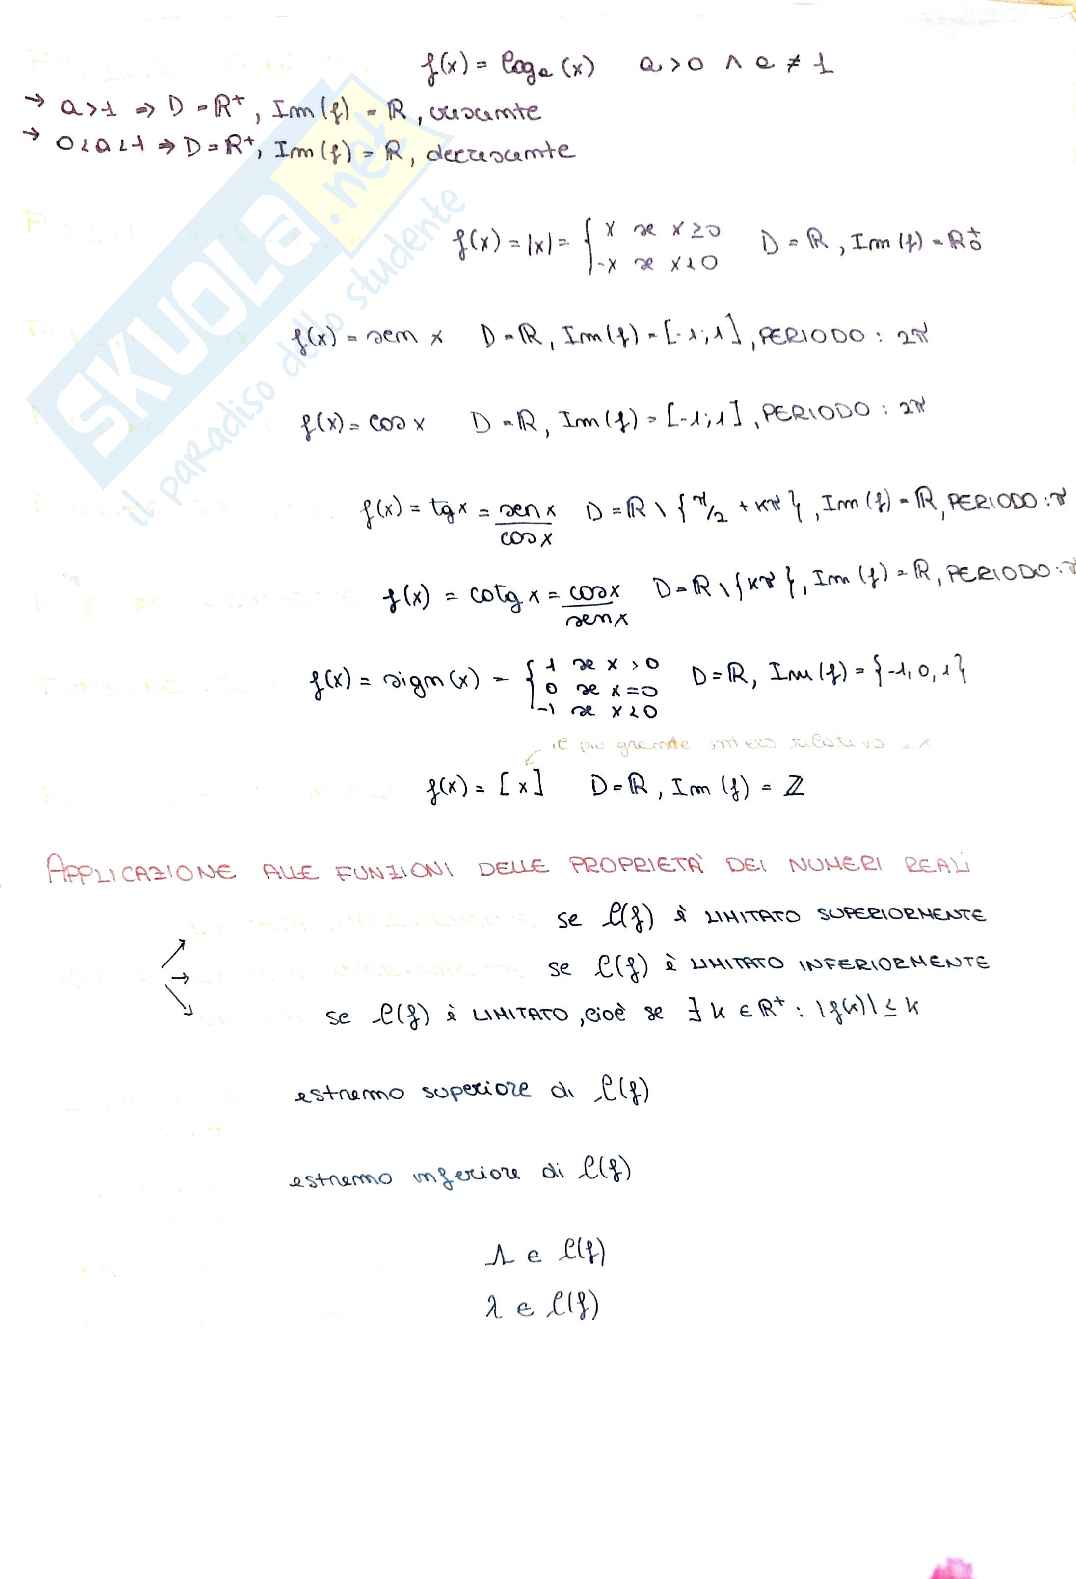 f(x) = log_a (x) a > 0 ∧ a ≠ 1
→ a > 1 ⇒ D = R⁺, Im(f) = R, crescente
→ 0 < a < 1 ⇒ D = R⁺, Im(f) = R, decrescente
f(x) = |x| = { x se x ≥ 0
-x se x < 0 D = R, Im(f) = R₀⁺
f(x) = sen x D = R, Im(f) = [-1; 1], PERIODO: 2π
f(x) = cos x D = R, Im(f) = [-1; 1], PERIODO: 2π
f(x) = tg x = sen x / cos x D = R \ { π/2 + kπ }, Im(f) = R, PERIODO: π
f(x) = cotg x = cos x / sen x D = R \ { kπ }, Im(f) = R, PERIODO: π
f(x) = sign(x) = { 1 se x > 0
0 se x = 0
-1 se x < 0 D = R, Im(f) = {-1, 0, 1}
il più grande intero relativo ≤ x
f(x) = [x] D = R, Im(f) = Z
APPLICAZIONE ALLE FUNZIONI DELLE PROPRIETÀ DEI NUMERI REALI
se C(f) è LIMITATO SUPERIORMENTE
se C(f) è LIMITATO INFERIORMENTE
se C(f) è LIMITATO, cioè se ∃ k ∈ R⁺ : |f(x)| ≤ k
estremo superiore di C(f)
estremo inferiore di C(f)
Λ ∈ C(f)
λ ∈ C(f)
SKUOLA.net
il paradiso dello studente